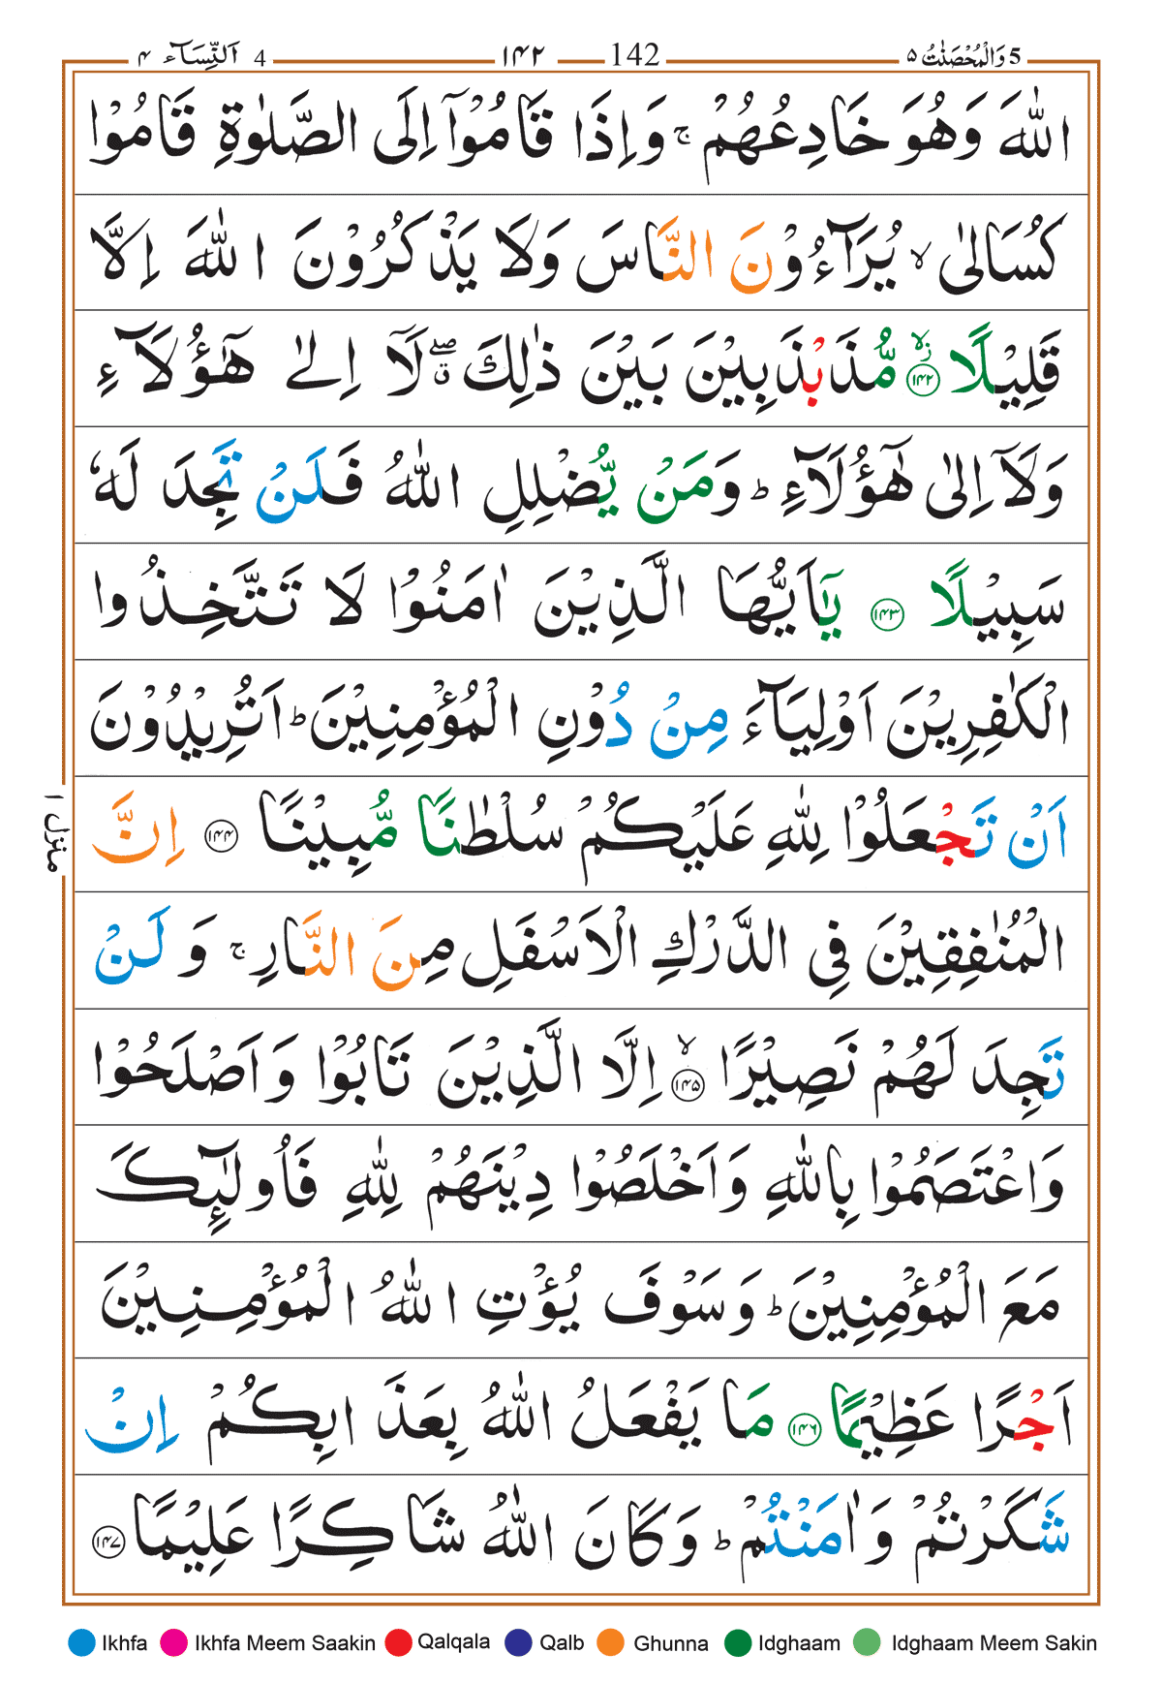 5 وَالْمُحْصَنٰتُ ٥ 142 ١٤٢ 4 اَلنِّسَآء ٤
اللّٰهَ وَهُوَ خَادِعُهُمْ ۚ وَاِذَا قَامُوْۤا اِلَى الصَّلٰوةِ قَامُوْا
كُسَالٰى ۙ يُرَآءُوْنَ النَّاسَ وَلَا يَذْكُرُوْنَ اللّٰهَ اِلَّا
قَلِيْلًا ۙ۬ ۝١٤٢ مُّذَبْذَبِيْنَ بَيْنَ ذٰلِكَ ۖۗ لَاۤ اِلٰى هٰۤؤُلَآءِ
وَلَاۤ اِلٰى هٰۤؤُلَآءِ ؕ وَمَنْ يُّضْلِلِ اللّٰهُ فَلَنْ تَجِدَ لَهٗ
سَبِيْلًا ۝١٤٣ يٰۤاَيُّهَا الَّذِيْنَ اٰمَنُوْا لَا تَتَّخِذُوا
الْكٰفِرِيْنَ اَوْلِيَآءَ مِنْ دُوْنِ الْمُؤْمِنِيْنَ ؕ اَتُرِيْدُوْنَ
اَنْ تَجْعَلُوْا لِلّٰهِ عَلَيْكُمْ سُلْطٰنًا مُّبِيْنًا ۝١٤٤ اِنَّ
منزل ١
الْمُنٰفِقِيْنَ فِى الدَّرْكِ الْاَسْفَلِ مِنَ النَّارِ ۚ وَلَنْ
تَجِدَ لَهُمْ نَصِيْرًا ۙ ۝١٤٥ اِلَّا الَّذِيْنَ تَابُوْا وَاَصْلَحُوْا
وَاعْتَصَمُوْا بِاللّٰهِ وَاَخْلَصُوْا دِيْنَهُمْ لِلّٰهِ فَاُولٰٓئِكَ
مَعَ الْمُؤْمِنِيْنَ ؕ وَسَوْفَ يُؤْتِ اللّٰهُ الْمُؤْمِنِيْنَ
اَجْرًا عَظِيْمًا ۝١٤٦ مَا يَفْعَلُ اللّٰهُ بِعَذَابِكُمْ اِنْ
شَكَرْتُمْ وَاٰمَنْتُمْ ؕ وَكَانَ اللّٰهُ شَاكِرًا عَلِيْمًا ۝١٤٧
Ikhfa Ikhfa Meem Saakin Qalqala Qalb Ghunna Idghaam Idghaam Meem Sakin